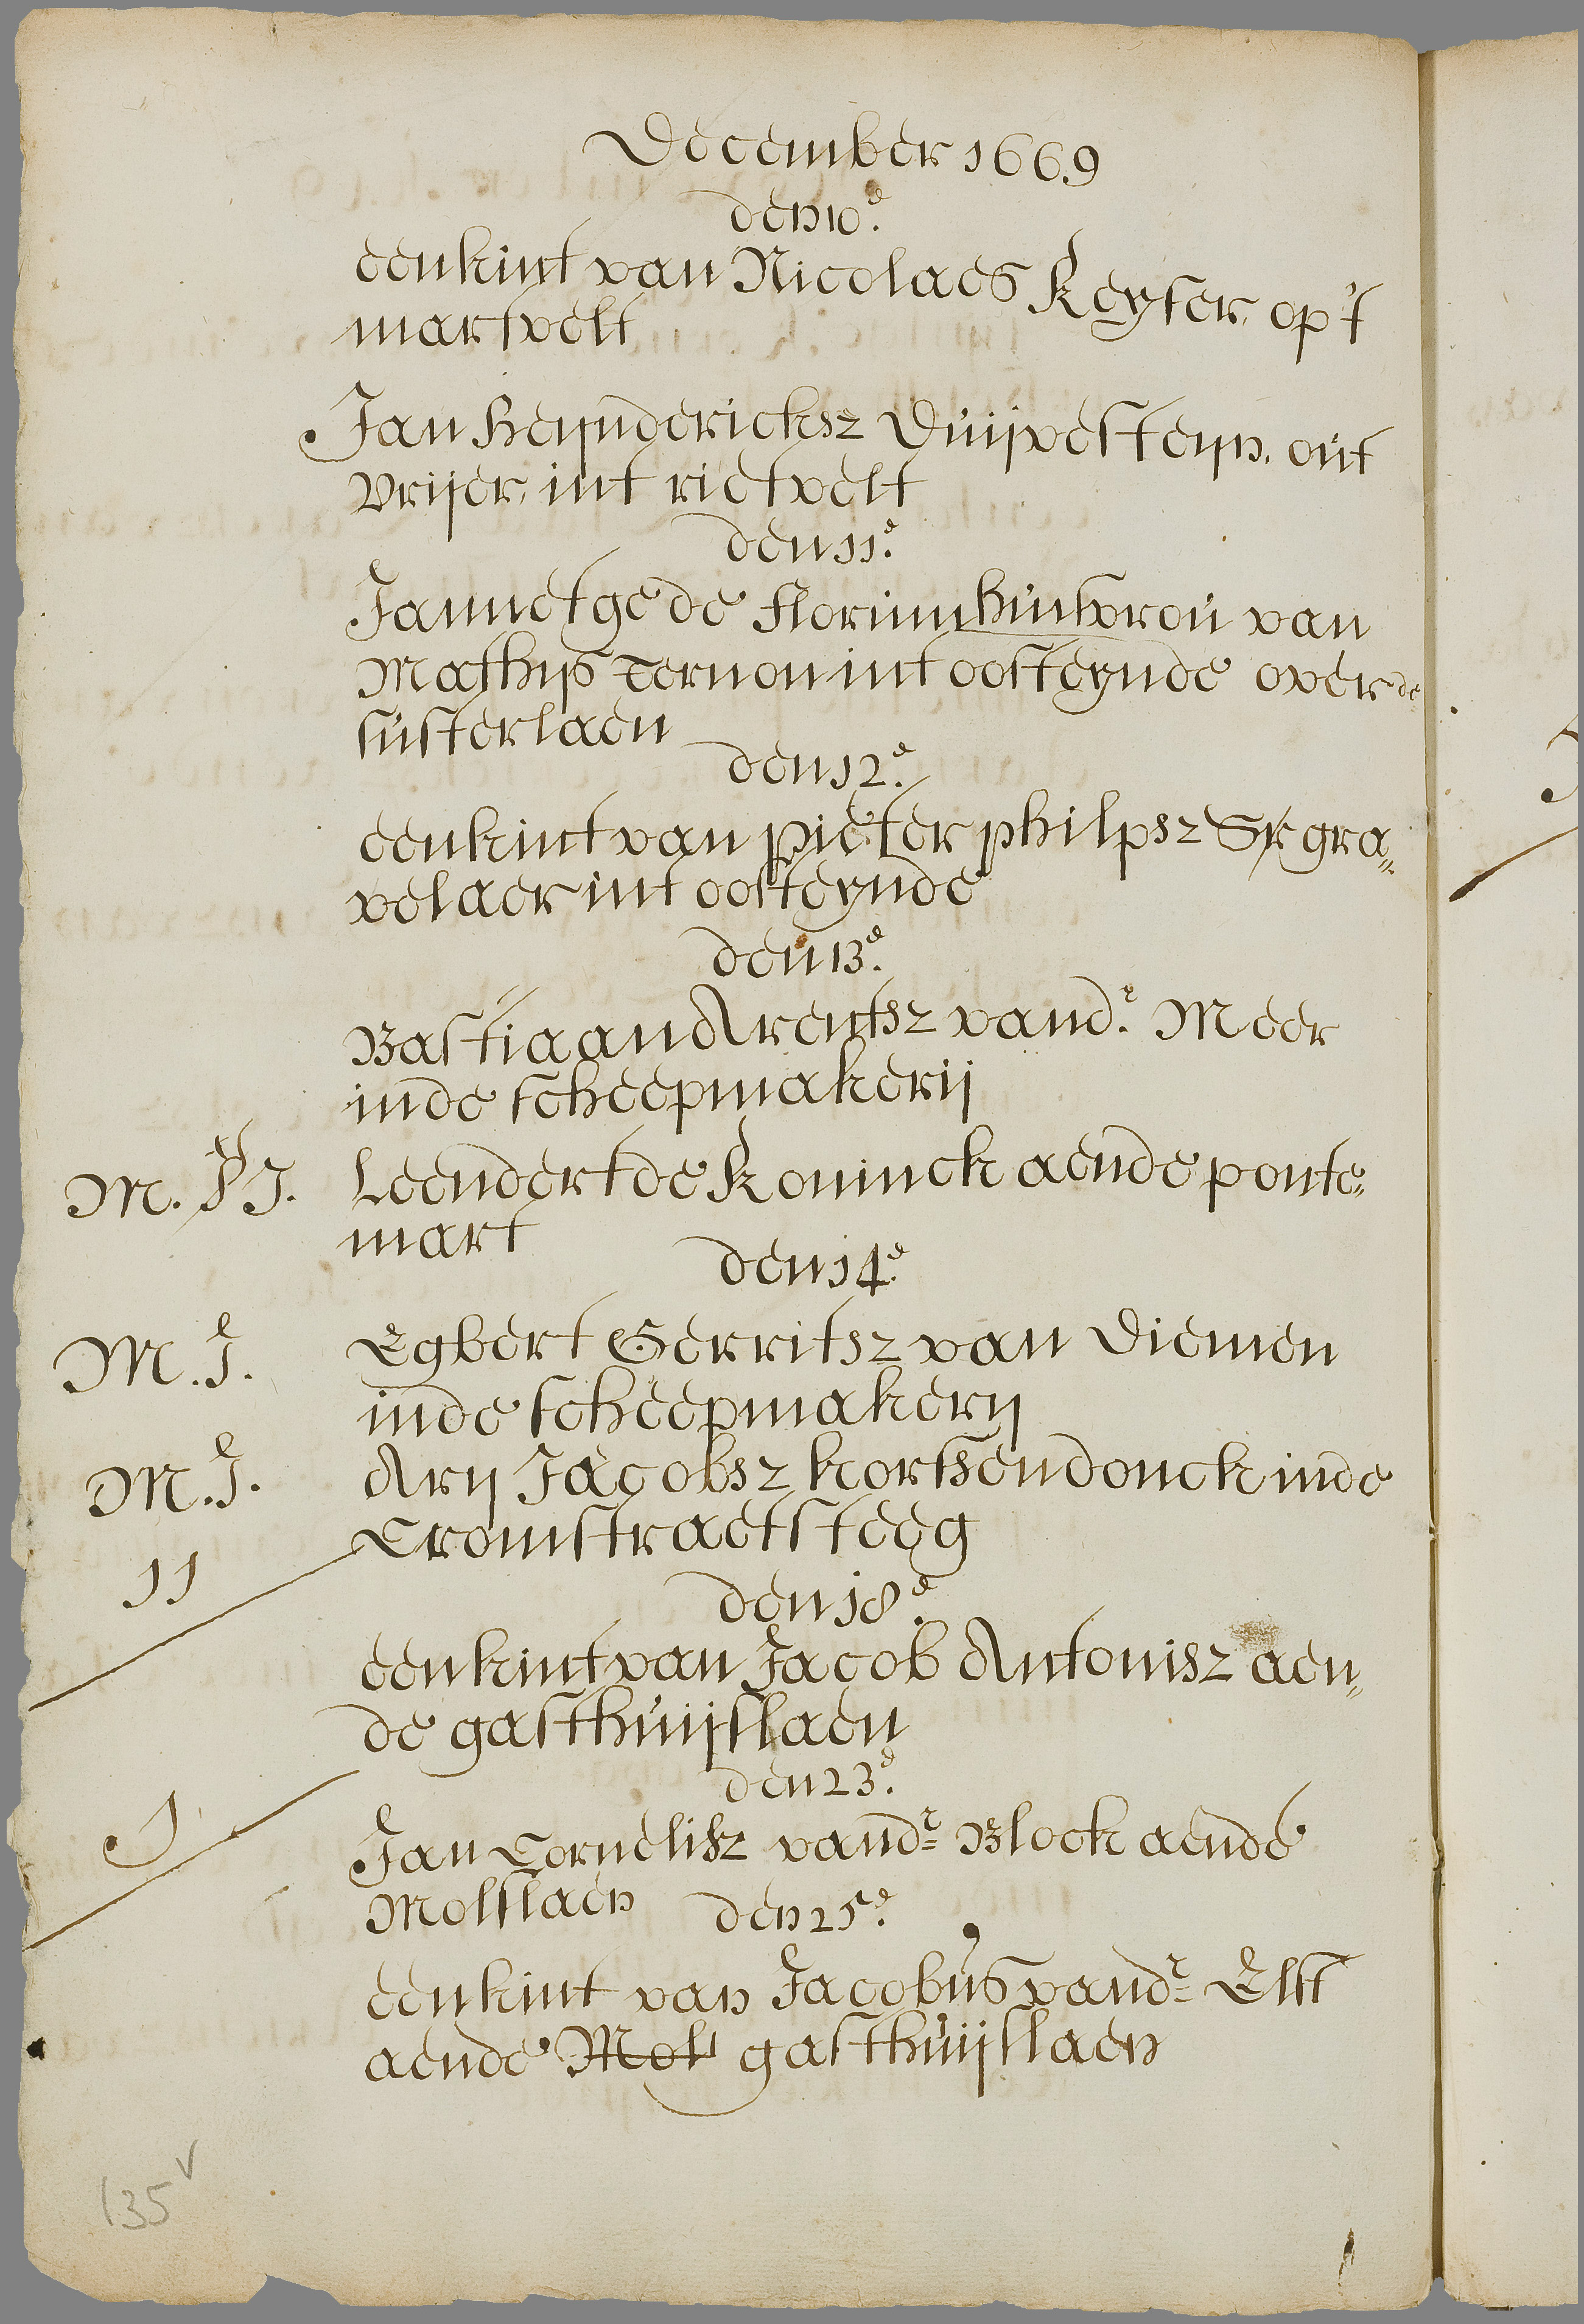 December 1669
den 10e.
een kint van Nicolaes Keyser, op 't
martvelt
Jan heyndericksz Duijvesteyn. out
Vrijer, int rietvelt
den 11e.
Jannetge de Florijnn huijsvrou van
Mathijs Ternon int oosteynde over de
susterlaen
den 12e.
een kint van pieter philpsz Sr gra„
velaer int oosteynde
den 13e.
Bastiaan Arentsz vandr. Meer
inde scheepmakerij
M. J. Leendert de Koninck aende ponte„
mart
den 14e.
M. J. Egbert Gerritsz van Diemen
inde scheepmakerij
M. J. Arij Jacobsz kortsendonck inde
11 Cromstraetsteeg
den 18e.
een kint van Jacob Antonisz aen„
de gasthuijslaen
den 23e.
1 Jan Cornelisz vandr Block aende
Molslaen den 25e.
een kint van Jacobus vandr Elst
aende Mol gasthuijslaen
135v